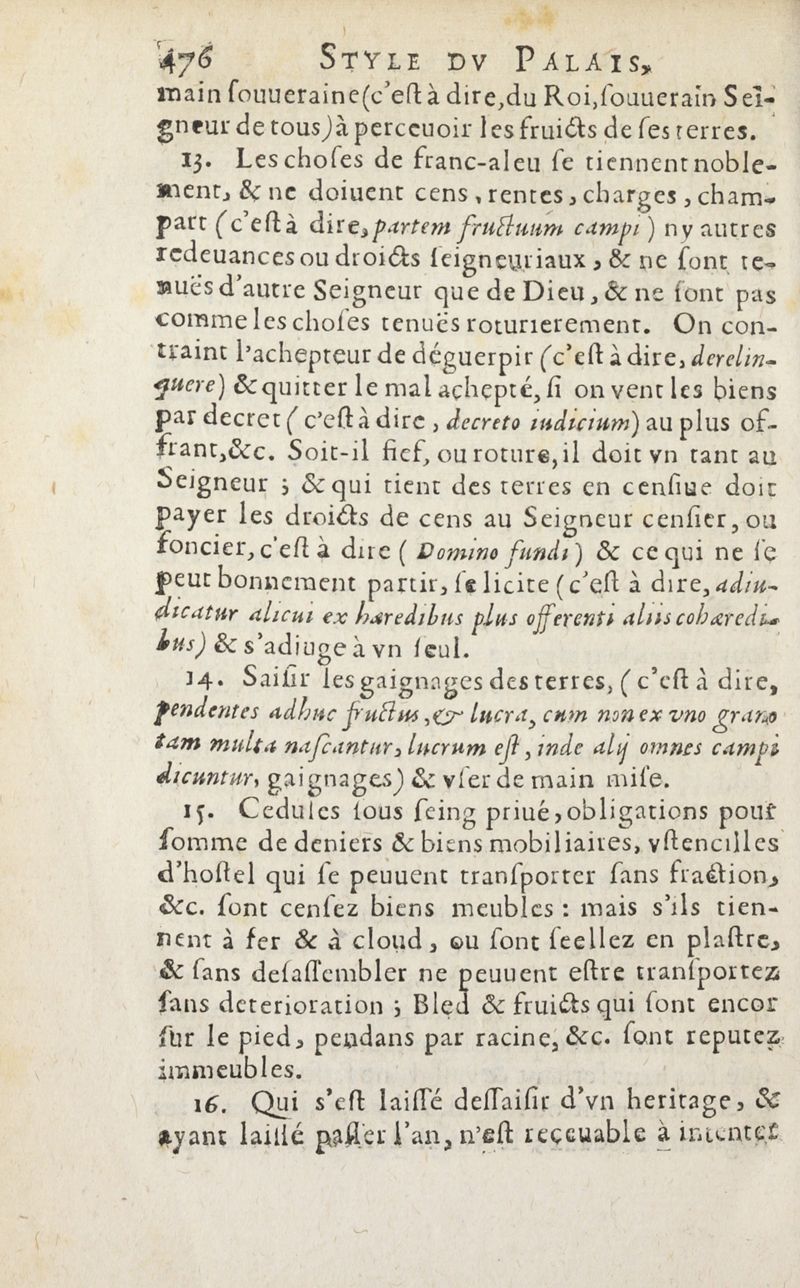 476 STYLE DV PALAIS,
main ſouueraine(c'eſt à dire,du Roi,ſouuerain Sei-
gneur de tous)à perceuoir les fruicts de ſes terres.
13. Les choſes de franc-aleu ſe tiennent noble-
ment, & ne doiuent cens, rentes, charges, cham-
part (c'eſt à dire, partem fructuum campi) ny autres
redeuances ou droicts ſeigneuriaux, & ne ſont te-
nuës d'autre Seigneur que de Dieu, & ne ſont pas
comme les choſes tenuës roturierement. On con-
traint l'achepteur de déguerpir (c'eſt à dire, derelin-
quere) & quitter le mal achepté, ſi on vent les biens
par decret ( c'eſt à dire, decreto iudicium) au plus of-
frant,&c. Soit-il fief, ou roture, il doit vn tant au
Seigneur ; & qui tient des terres en cenſiue doit
payer les droicts de cens au Seigneur cenſier, ou
foncier, c'eſt à dire ( Domino fundi) & ce qui ne ſe
peut bonnement partir, ſe licite (c'eſt à dire, adiu-
dicatur alicui ex hæredibus plus offerenti aliis cohæredi-
bus) & s'adiuge à vn ſeul.
14. Saiſir les gaignages des terres, ( c'eſt à dire,
pendentes adhuc fructus, & lucra, cum non ex vno grano
tam multa naſcantur, lucrum eſt, inde alij omnes campi
dicuntur, gaignages) & vſer de main miſe.
15. Cedules ſous ſeing priué, obligations pour
ſomme de deniers & biens mobiliaires, vſtencilles
d'hoſtel qui ſe peuuent tranſporter ſans fraction,
&c. ſont cenſez biens meubles : mais s'ils tien-
nent à fer & à cloud, ou ſont ſeellez en plaſtre,
& ſans deſaſſembler ne peuuent eſtre tranſportez
ſans deterioration ; Bled & fruicts qui ſont encor
ſur le pied, pendans par racine, &c. ſont reputez
immeubles.
16. Qui s'eſt laiſſé deſſaiſir d'vn heritage, &
ayant laiſſé paſſer l'an, n'eſt receuable à intenter